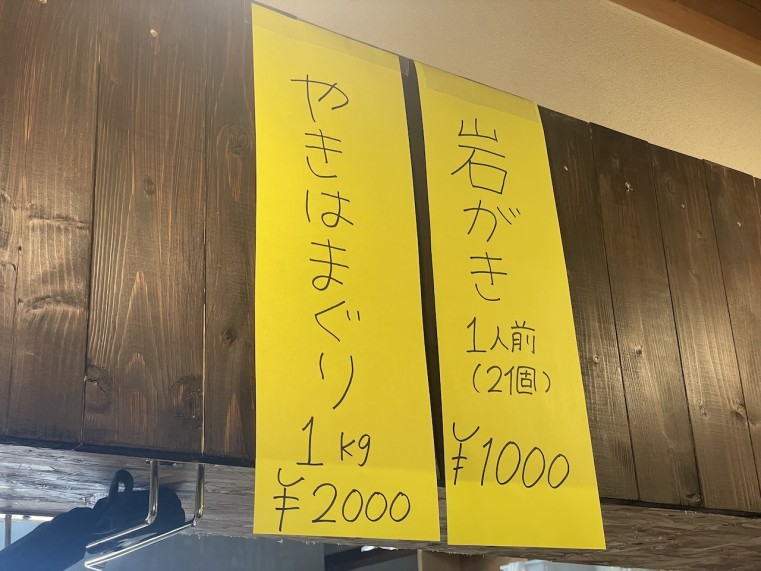 やきはまぐり
1kg
¥2000
岩がき
1人前
(2個)
¥1000